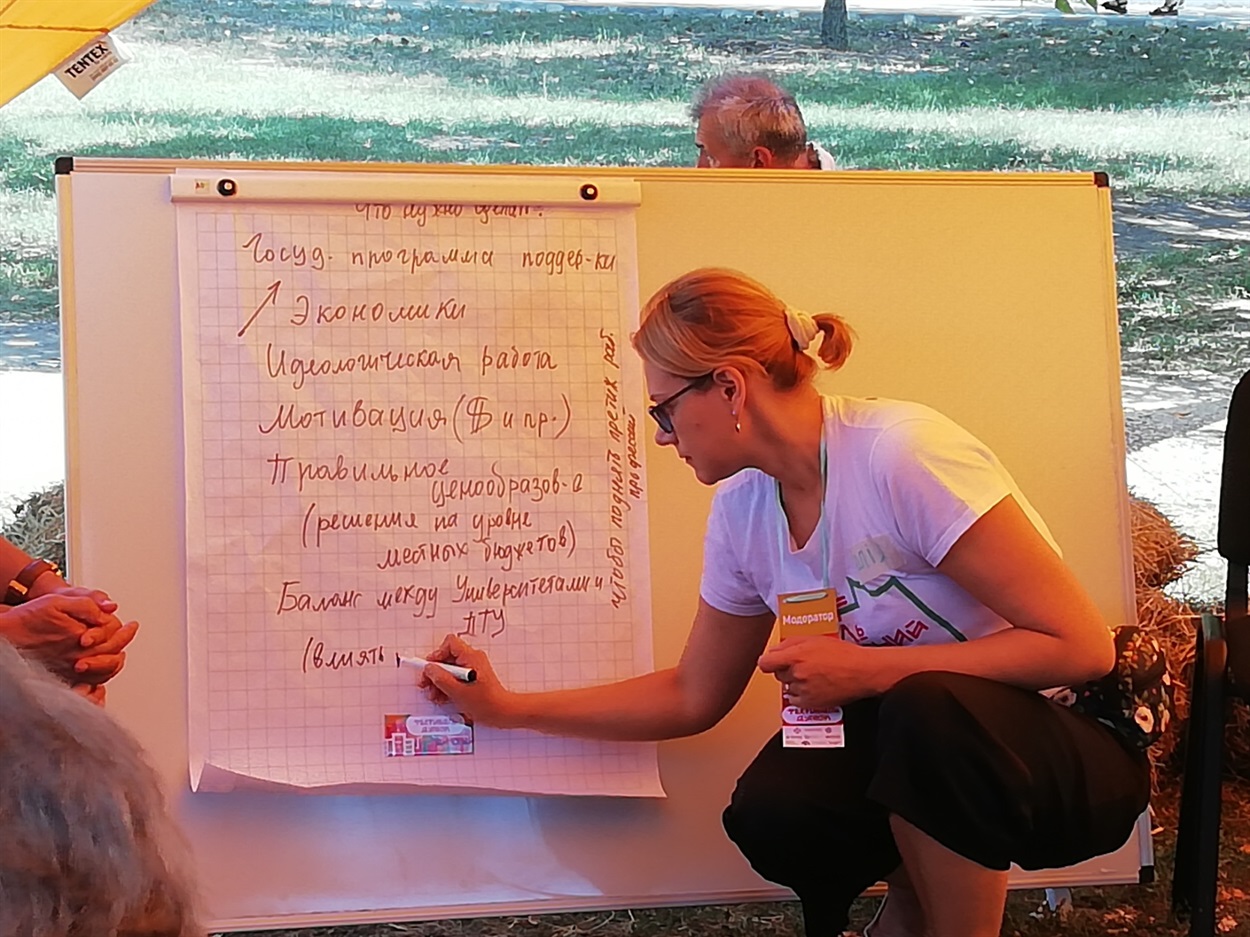 TENTEX
Что нужно сделат?
Госуд. программа поддер-ки
Экономики
Идеологическая работа
Мотивация ($ и пр.)
Правильное
ценообразов-е
(решения на уровне
местных бюджетов)
Баланс между Университетами и
ПТУ
(влиять
чтобы поднять престиж раб.
профессий
Модератор